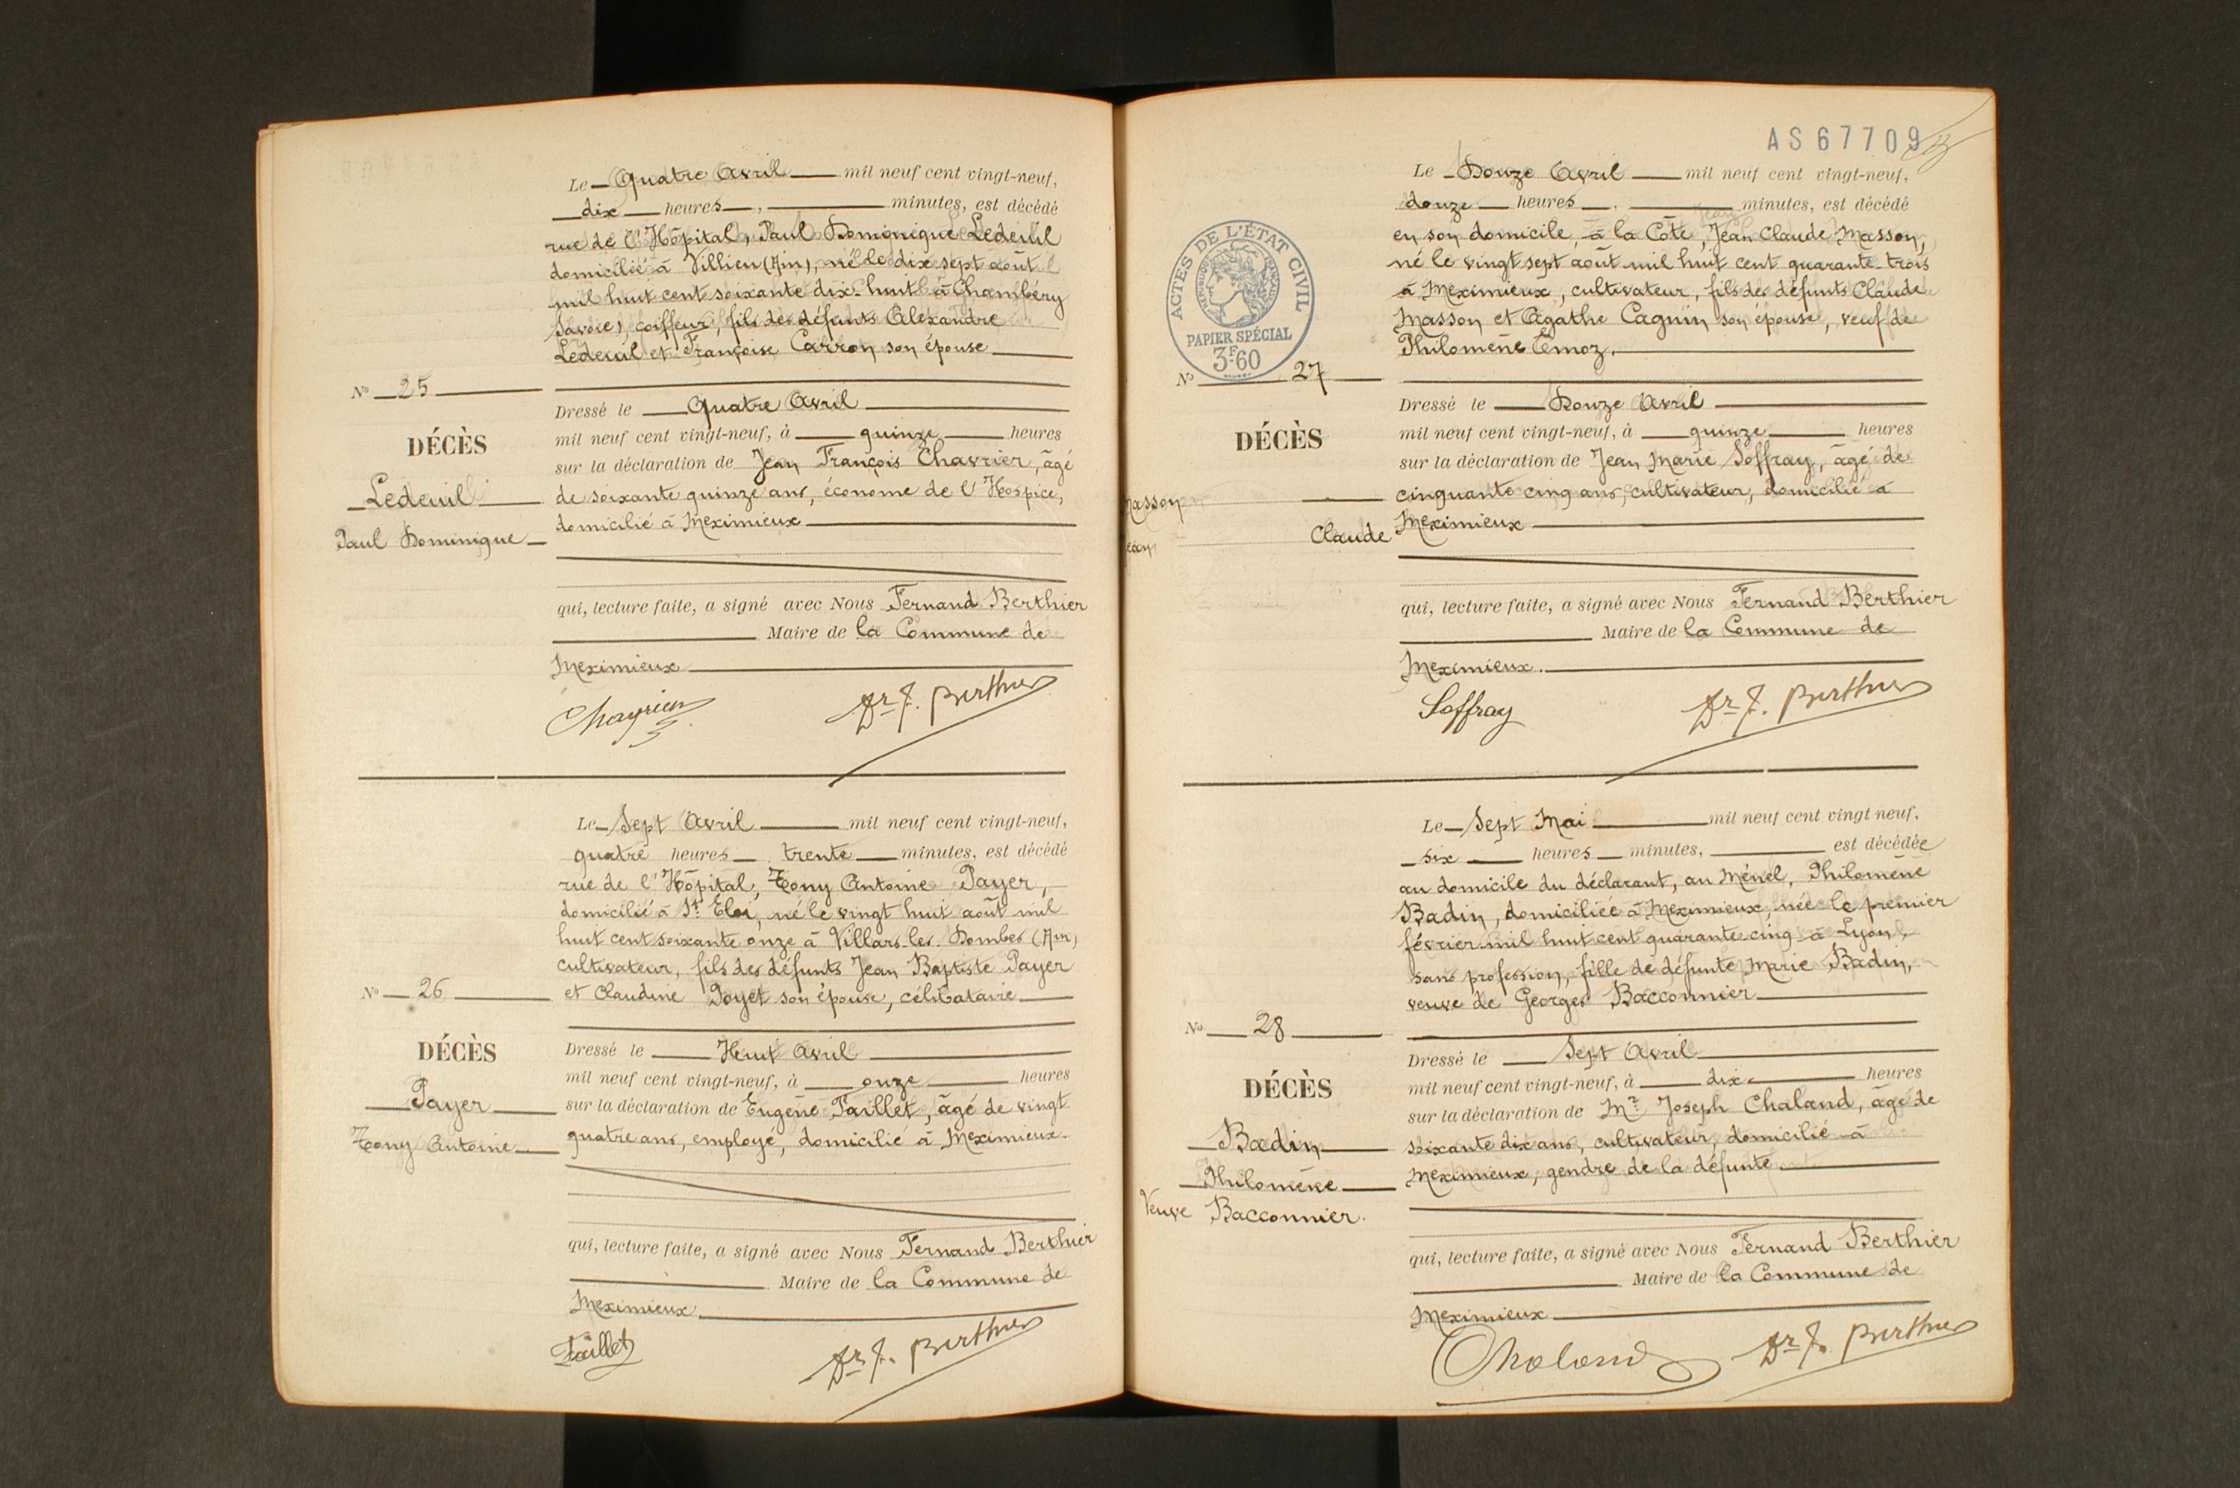 Le Quatre Avril mil neuf cent vingt-neuf,
dix heures, minutes, est décédé
rue de l'Hôpital, Paul Dominique Ledeuil
domicilié à Villieu (Ain), né le dix sept août
mil huit cent soixante dix-huit à Chambéry
Savoie), coiffeur, fils des défunts Alexandre
Ledeuil et Françoise Carron son épouse
No 25
DÉCÈS
Ledeuil
Paul Dominique
Dressé le Quatre Avril
mil neuf cent vingt-neuf, à quinze heures
sur la déclaration de Jean François Chavrier, âgé
de soixante quinze ans, économe de l'Hospice,
domicilié à Meximieux
qui, lecture faite, a signé avec Nous Fernand Berthier
Maire de la Commune de
Meximieux
Chavrier
Dr F. Berthier
Le Sept Avril mil neuf cent vingt-neuf,
quatre heures, trente minutes, est décédé
rue de l'Hôpital, Tony Antoine Payer,
domicilié à St Eloi, né le vingt huit août mil
huit cent soixante onze à Villars-les-Dombes (Ain)
cultivateur, fils des défunts Jean Baptiste Payer
et Claudine Poyet son épouse, célibataire
No 26
DÉCÈS
Payer
Tony Antoine
Dressé le Huit Avril
mil neuf cent vingt-neuf, à onze heures
sur la déclaration de Eugène Taillet, âgé de vingt
quatre ans, employé, domicilié à Meximieux.
qui, lecture faite, a signé avec Nous Fernand Berthier
Maire de la Commune de
Meximieux
Taillet
Dr F. Berthier
AS67709
ACTES DE L'ÉTAT CIVIL
PAPIER SPÉCIAL
3F60
Le Douze Avril mil neuf cent vingt-neuf,
douze heures, minutes, est décédé
en son domicile, à la Côte, Jean Claude Masson,
né le vingt sept août mil huit cent quarante-trois
à Meximieux, cultivateur, fils des défunts Claude
Masson et Agathe Cagnin son épouse, veuf de
Philomène Emoz.
No 27
DÉCÈS
Masson
Jean Claude
Dressé le Douze Avril
mil neuf cent vingt-neuf, à quinze heures
sur la déclaration de Jean Marie Soffray, âgé de
cinquante cinq ans, cultivateur, domicilié à
Meximieux
qui, lecture faite, a signé avec Nous Fernand Berthier
Maire de la Commune de
Meximieux.
Soffray
Dr F. Berthier
Le Sept Mai mil neuf cent vingt neuf,
six heures minutes, est décédée
au domicile du déclarant, au Ménel, Philomène
Badin, domiciliée à Meximieux, née le premier
février mil huit cent quarante-cinq à Lyon,
sans profession, fille de défunte Marie Badin,
veuve de Georges Bacconnier
No 28
DÉCÈS
Badin
Philomène
Veuve Bacconnier.
Dressé le Sept Avril
mil neuf cent vingt-neuf, à dix heures
sur la déclaration de Mr Joseph Chaland, âgé de
soixante dix ans, cultivateur, domicilié à
Meximieux, gendre de la défunte.
qui, lecture faite, a signé avec Nous Fernand Berthier
Maire de la Commune de
Meximieux
Chaland
Dr F. Berthier